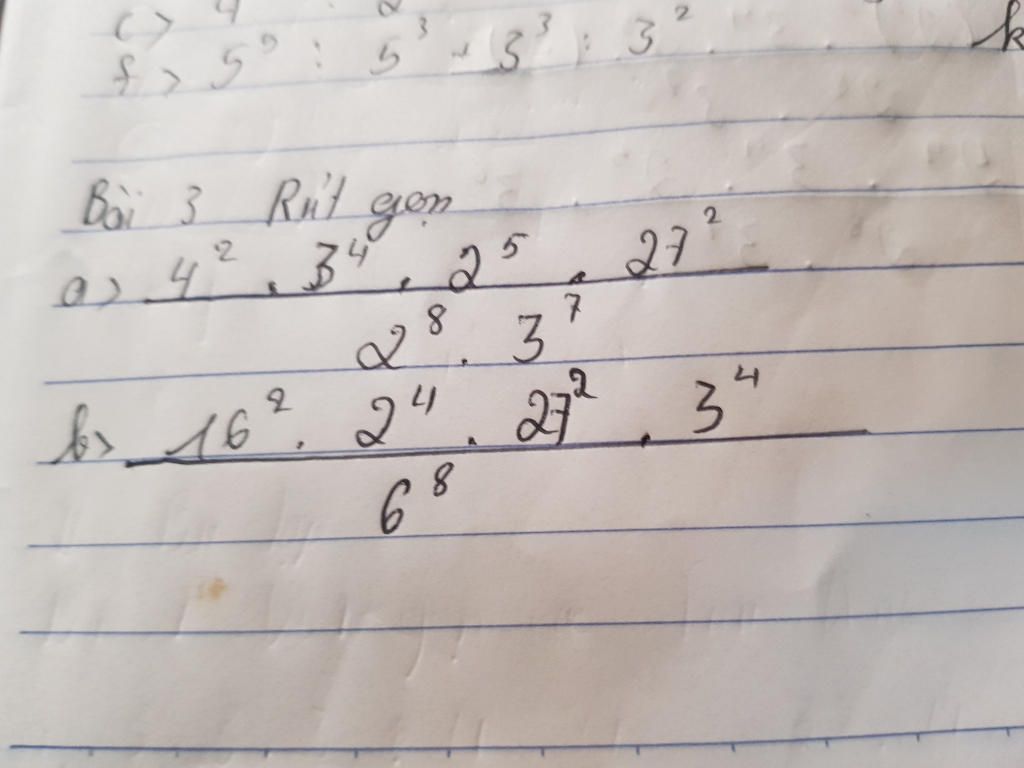 c) 4
f) 5⁵ : 5³ + 3³ : 3² k
Bài 3 Rút gọn
a) 4² . 3⁴ . 2⁵ . 27²
2⁸ . 3⁷
b) 16² . 2⁴ . 27² . 3⁴
6⁸